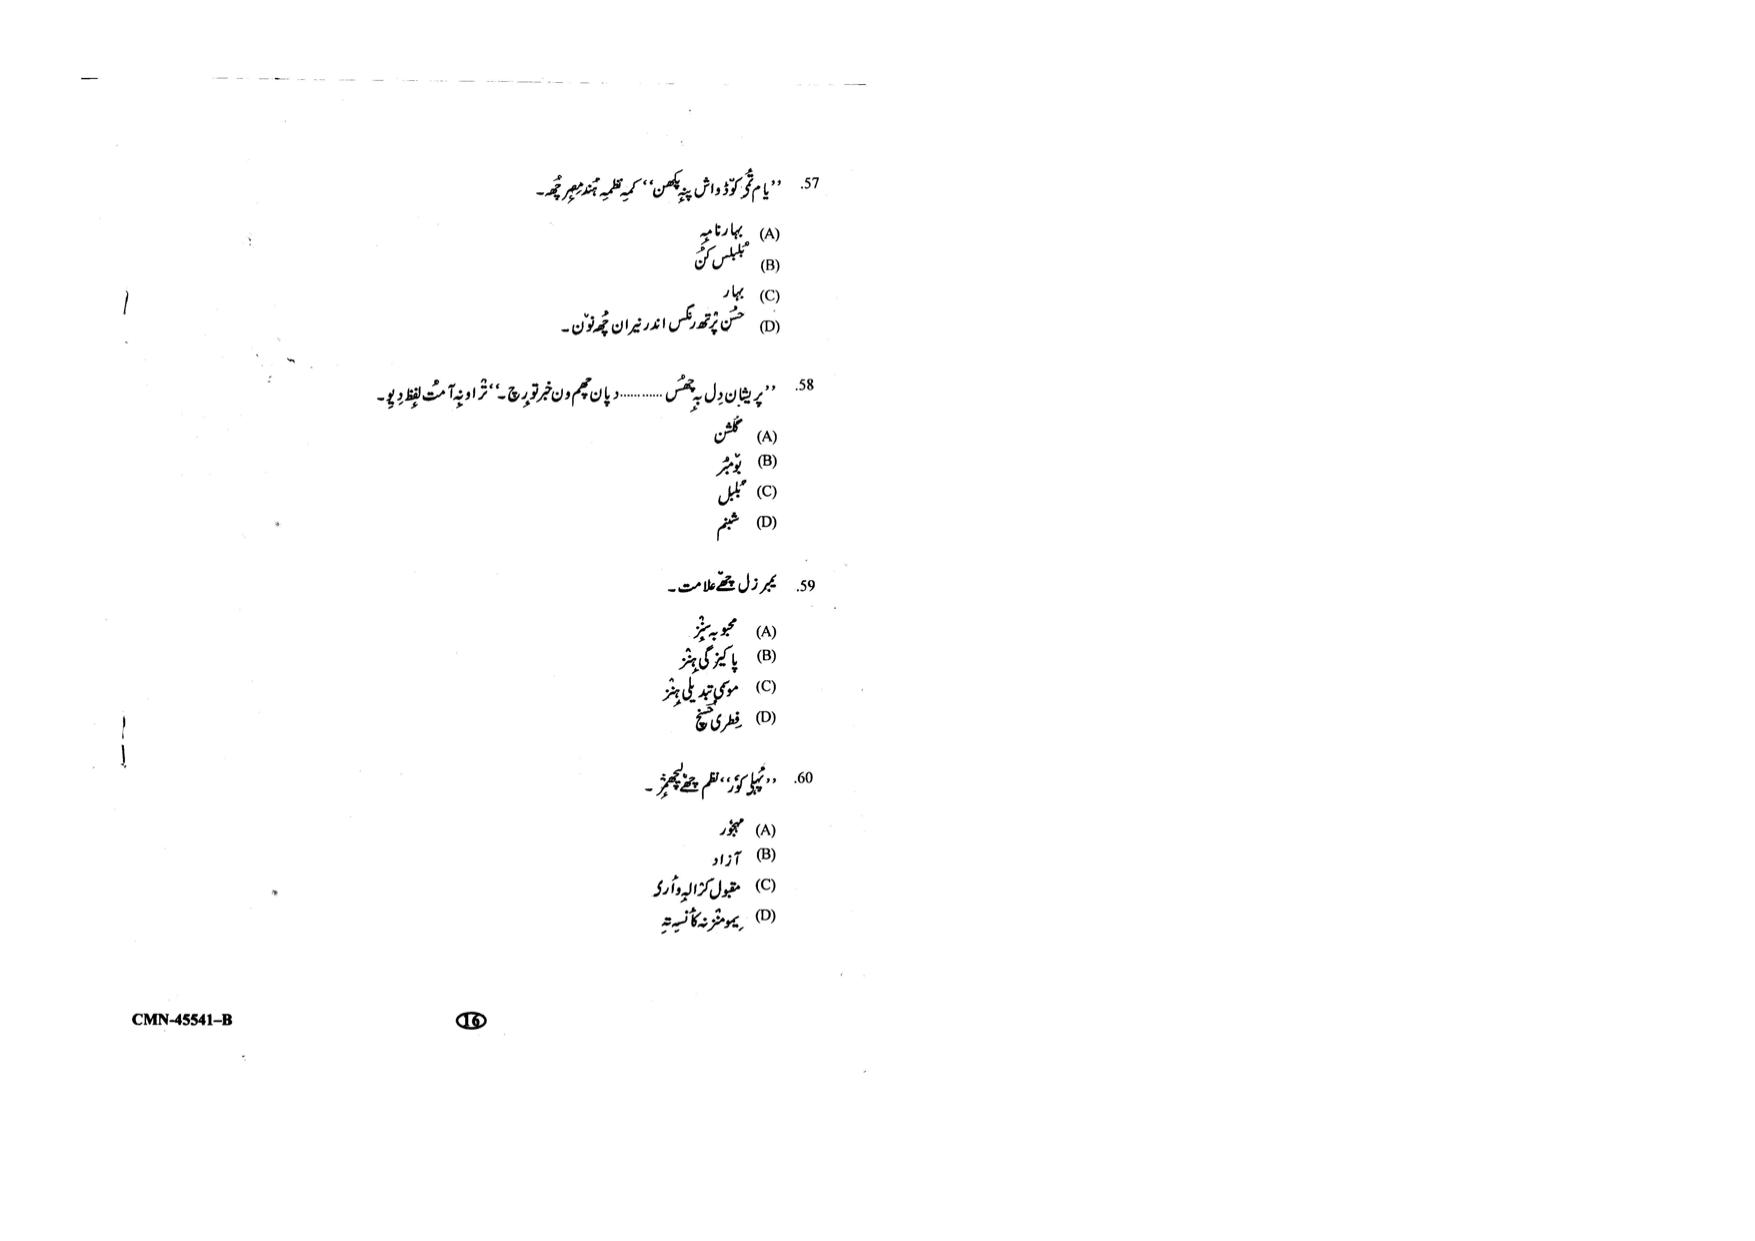 57. ’’یام تٔمۍ کوٚڈ واش پنہٕ پکھن‘‘ کمہِ نظمہِ ہُند مِصرٕ چُھ۔
(A) بہار نامہٕ
(B) بُلبُلس کُن
(C) بہار
(D) حُسن پرٛتھ رنگس اندر نیران چُھ نوٚن۔
58. ’’پریشان دِل بہٕ چُھس ............ دپان چھم ون خبر توٗرِچ۔‘‘ ترٛاونہٕ آمُت لفظ دِیو۔
(A) گُلشن
(B) بوٚمبُر
(C) بُلبُل
(D) شبنم
59. یمبرزل چھےٚ علامت۔
(A) محبوبہٕ ہٕنٛز
(B) پاکیزگی ہٕنٛز
(C) موسمی تبدیلی ہٕنٛز
(D) فِطری حُسنٕچ
60. ’’پُہلۍ کوٗر‘‘ نظم چھےٚ لیٚچھمٕژ۔
(A) مہجوٗر
(B) آزاد
(C) مقبول کرٛالہٕ وٲرۍ
(D) یِمو منٛزٕ نہ کانٛسہِ تہِ
CMN-45541–B
16